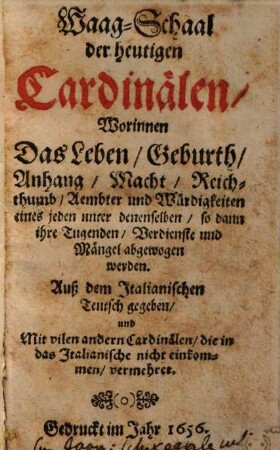 Waag-Schaal
der heutigen
Cardinälen/
Worinnen
Das Leben/Geburth/
Anhang/Macht/Reich-
thumb/Aembter und Würdigkeiten
eines jeden unter denenselben/so dann
ihre Tugenden/Verdienste und
Mängel abgewogen
werden.
Auß dem Italianischen
Teutsch gegeben/
und
Mit vilen andern Cardinälen/die in
das Italianische nicht einkom-
men/vermehret.
Gedruckt im Jahr 1656.